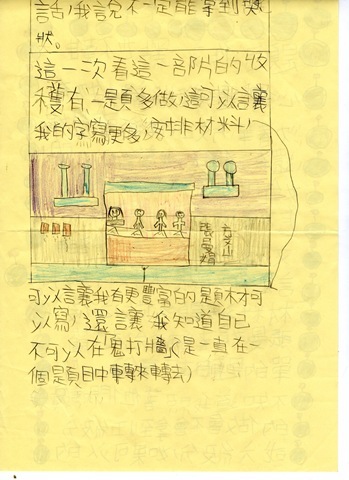 話，我說不一定能拿到獎
狀。
這一次看這一部片的收
穫有，一題多做，這可以讓
我的字寫更多，安排材料，
可以讓我有更豐富的題材可
以寫，還讓我知道自己
不可以在「鬼打牆」（是一直在一
個題目中轉來轉去）